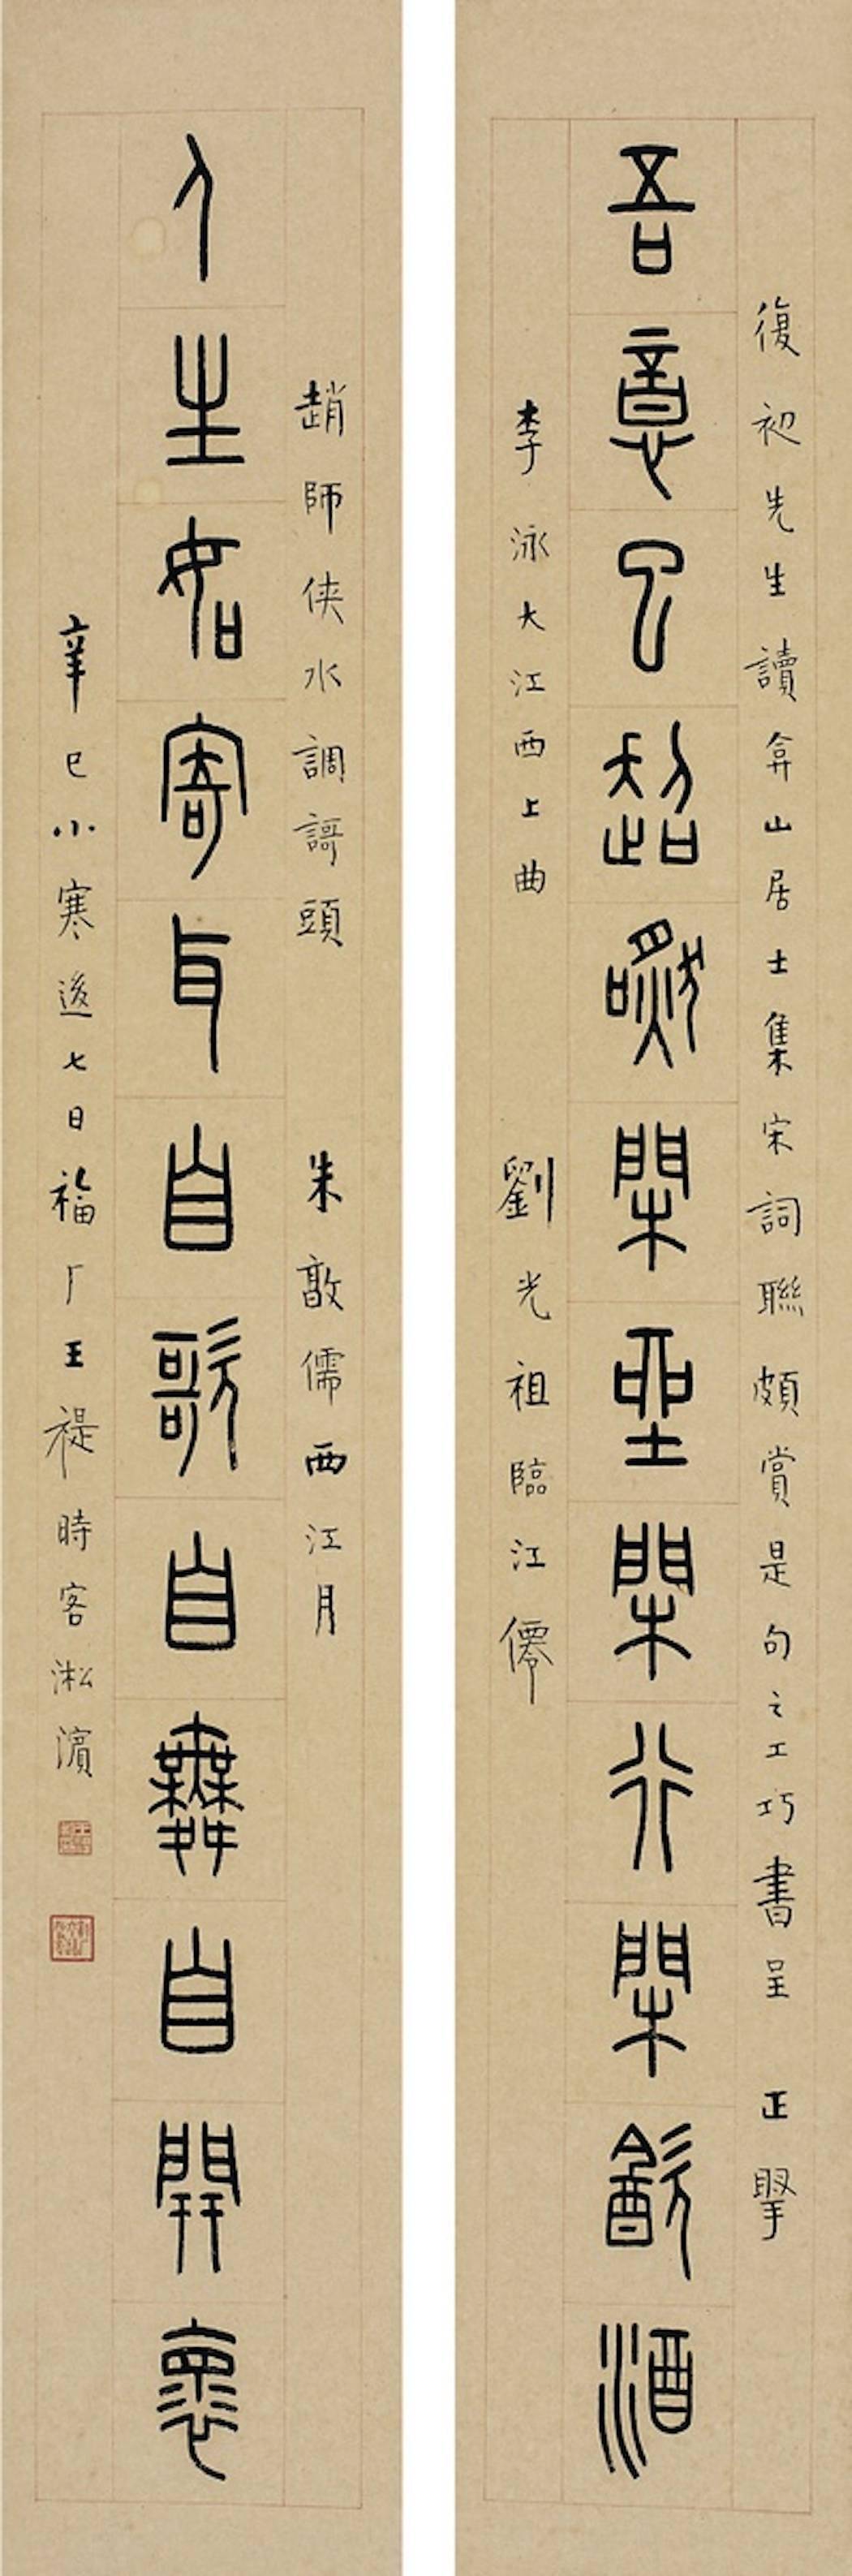 復初先生讀弇山居士集宋詞聯頗賞是句之工巧書呈 正掔
吾意已超然閑坐閑行閑飲酒
李泳大江西上曲 劉光祖臨江僊
趙師俠水調謌頭 朱敦儒西江月
人生如寄耳自歌自舞自開懷
辛巳小寒後七日福厂王禔時客淞濱